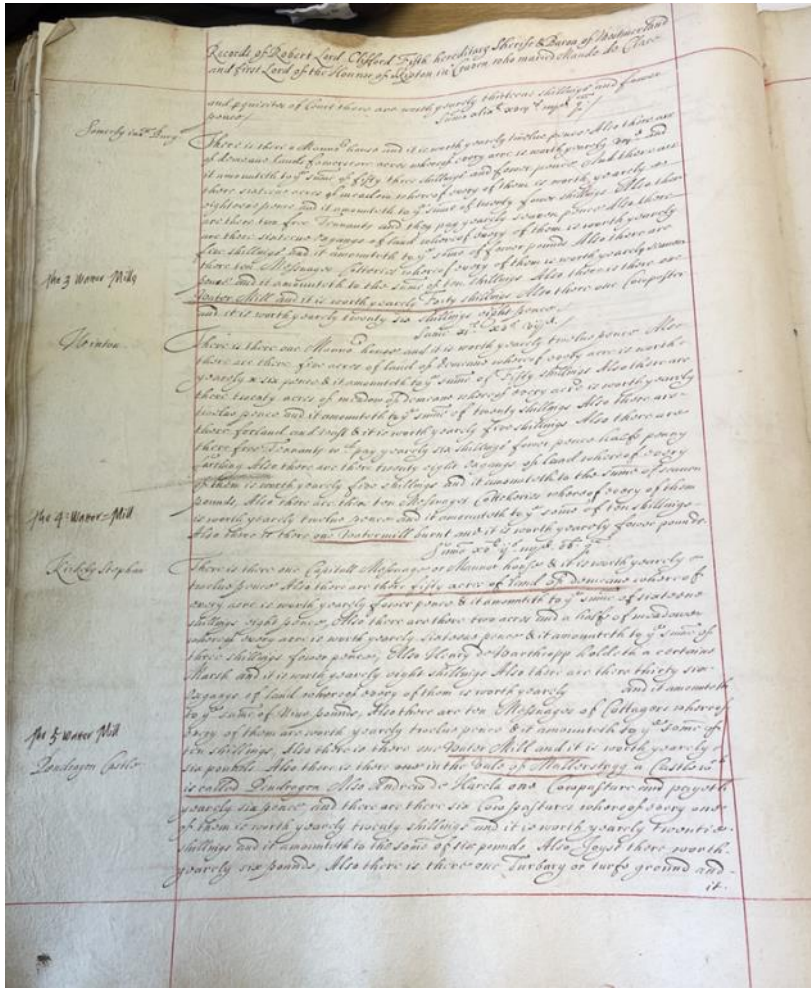 Records of Robert Lord Clifford Fifth hereditary Sherife & Baron of Westmerland
and first Lord of the Honner of Skipton in Craven who maried Maude de Clare
and pquisites of Court there are worth yearely thirteene shillings and fower
pence /
Somerby
There is there a Mannor house and it is worth yearely twelve pence Also there are
of demeane lands fowerscore acres whereof every acre is worth yearely and
it amounteth to ye sume of fifty three shillings and fower pence And there are
there sixteene acres of meadow whereof every of them is worth yearely
eighteene pence and it amounteth to ye sume of twenty fower shillings Also there
are there two free Tennants and they pay yearely seaven pence Also there
are there sixteene Oxgangs of land whereof every of them is worth yearely
five shillings and it amounteth to ye sume of fower pounds Also there are
there ten Messuages Cottories whereof every of them is worth yearely
pence and it amounteth to the sume of ten shillings Also there is there one
the 3 water Mills
Water Mill and it is worth yearely Forty shillings Also there one Cowpasture
and it is worth yearely twenty six shillings eight pence.
Winton
There is there one Mannor house and it is worth yearely twelve pence Also
there are there five acres of land of demeane whereof every acre is worth
yearely six pence & it amounteth to ye sume of Fifty shillings Also there are
there twenty acres of meadow of demeane whereof every acre is worth yearely
twelve pence and it amounteth to ye sume of twenty shillings Also there are
there forland and wast & it is worth yearely Five shillings Also there are
there free Tennants wch pay yearely six shillings fower pence halfe penny
farthing Also there are there twenty eight Oxgangs of land whereof every
of them is worth yearely five shillings and it amounteth to the sume of seaven
pounds, Also there are there ten Messuages Cottories whereof every of them
is worth yearely twelve pence and it amounteth to ye sume of ten shillings
the 4th Water Mill
Also there is there one Watermill burnt and it is worth yearely fower pounds.
Kirkby Stephen
There is there one Capitall Messuage or Mannor house & it is worth yearely
twelve pence Also there are there fifty acres of land of demeane whereof
every acre is worth yearely fower pence & it amounteth to ye sume of sixteene
shillings eight pence, Also there are there two acres and a halfe of meadow
whereof every acre is worth yearely sixteene pence & it amounteth to ye sume of
three shillings fower pence, Also Henry de Warthropp holdeth a certaine
Marsh and it is worth yearely eight shillings Also there are there thirty six
Oxgangs of land whereof every of them is worth yearely and it amounteth
to ye sume of Nine pounds, Also there are ten Messuages of Cottagers whereof
every of them are worth yearely twelve pence & it amounteth to ye some of
the 5 water Mill
ten shillings, Also there is there one Water Mill and it is worth yearely
Pendragon Castle
six pounds. Also there is there one in the vale of Mallerstang a Castle wch
is called Pendragon Also Andrew de Harcla one Cowpasture and payeth
yearely six pence and there are there six Cowpastures whereof every one
of them is worth yearely twenty shillings and it is worth yearely twentie
shillings and it amounteth to the some of six pounds Also Joyst there worth
yearely six pounds, Also there is there one Turbary or turfe ground and
it.